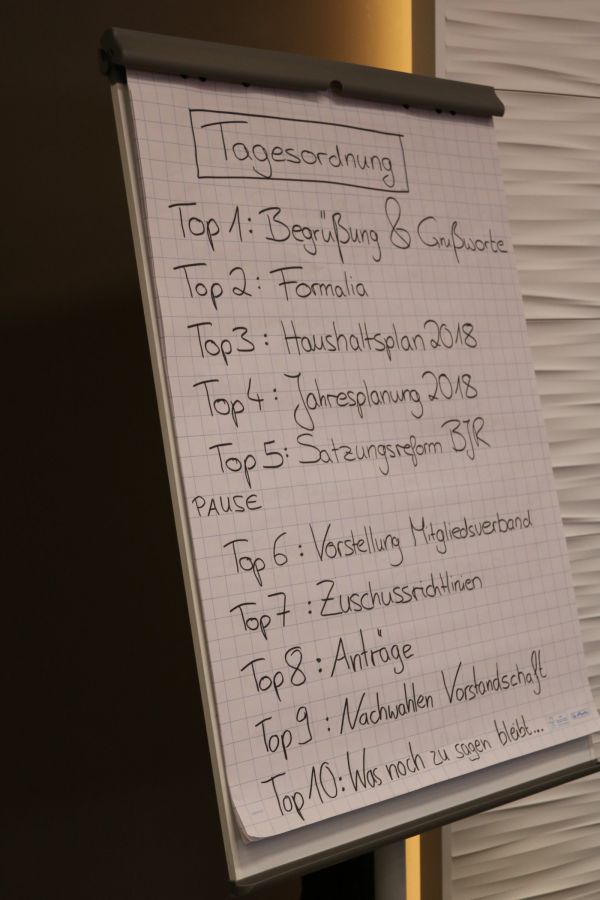 Tagesordnung
Top 1: Begrüßung & Grußworte
Top 2: Formalia
Top 3: Haushaltsplan 2018
Top 4: Jahresplanung 2018
Top 5: Satzungsreform BJR
PAUSE
Top 6: Vorstellung Mitgliedsverband
Top 7: Zuschussrichtlinien
Top 8: Anträge
Top 9: Nachwahlen Vorstandschaft
Top 10: Was noch zu sagen bleibt...